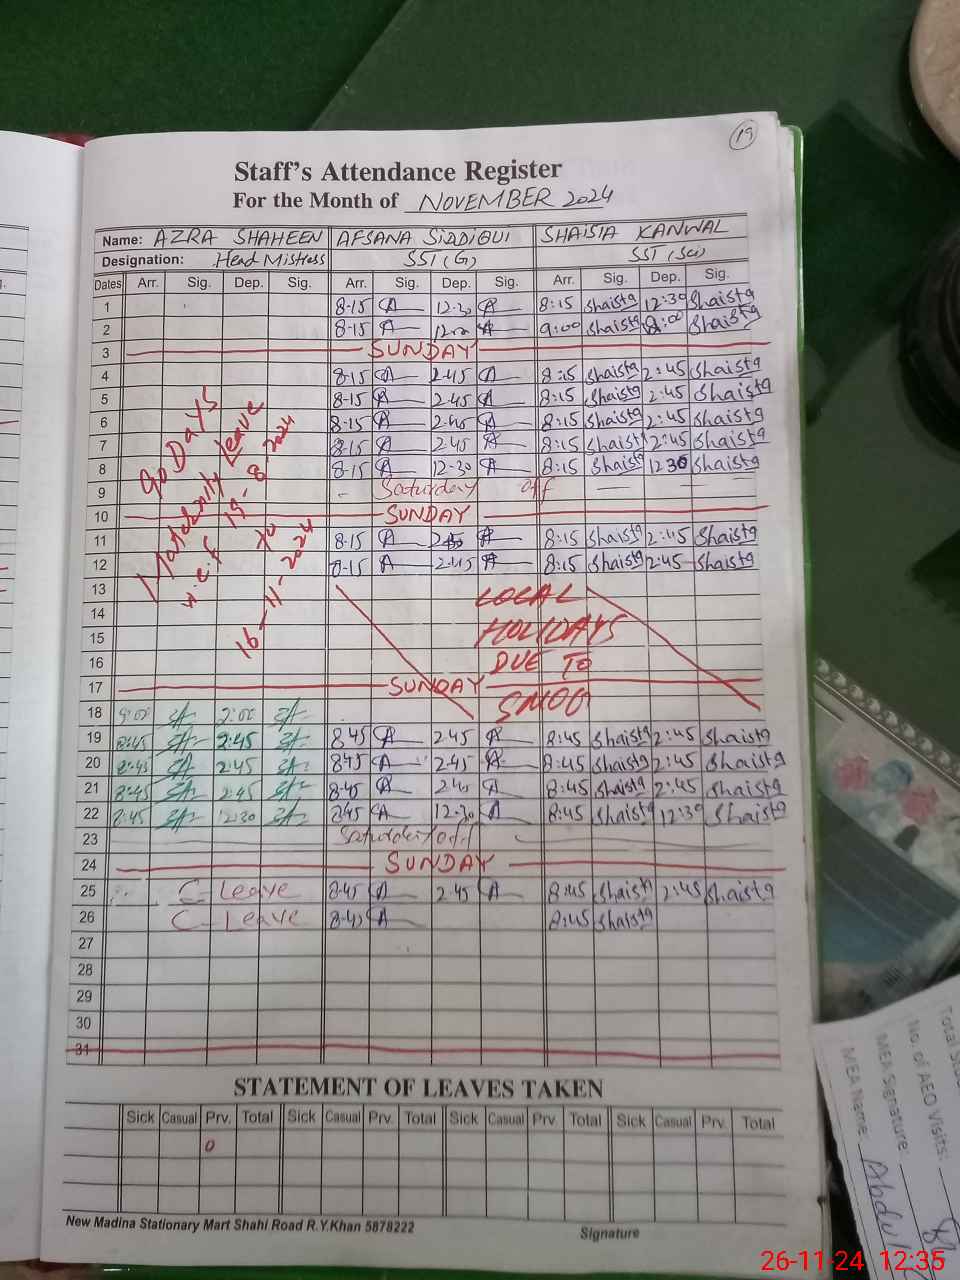 19
Staff's Attendance Register
For the Month of NOVEMBER 2024
Name: AZRA SHAHEEN AFSANA SIDDIQUI SHAISTA KANWAL
Designation: Head Mistress SST (G) SST (Sci)
Dates Arr. Sig. Dep. Sig. Arr. Sig. Dep. Sig. Arr. Sig. Dep. Sig.
1 8-15 A 12-30 A 8:15 Shaista 12:30 Shaista
2 8-15 A A 9:00 Shaista Shaista
3 SUNDAY
4 8-15 A 2-45 A 8:15 Shaista 2:45 Shaista
5 8-15 A 2-45 A 8:15 Shaista 2:45 Shaista
6 8-15 A 2-45 A 8:15 Shaista 2:45 Shaista
7 8-15 A 2-45 A 8:15 Shaista 2:45 Shaista
8 8-15 A 12-30 A 8:15 Shaista 12 30 Shaista
9 Saturday off
10 SUNDAY
11 8-15 A A 8:15 Shaista 2:45 Shaista
12 8-15 A 2-45 A 8:15 Shaista 2:45 Shaista
90 Days
Maternity Leave
w.e.f 19-8-2024
to
16-11-2024
13 LOCAL
14 HOLIDAYS
15
16 DUE TO
17 SUNDAY
18 9:00 2:00 SMOG
19 8:45 2:45 8 45 A 2-45 A 8:45 Shaista 2:45 Shaista
20 8:45 2:45 8 45 A 2-45 A 8:45 Shaista 2:45 Shaista
21 8:45 2:45 8-45 A A 8:45 Shaista 2:45 Shaista
22 8:45 12:30 8 45 A 12-30 A 8:45 Shaista 12:30 Shaista
23 Saturday off
24 SUNDAY
25 C-Leave 8-45 A 2-45 A 8:45 Shaista 2:45 Shaista
26 C-Leave 8-45 A 8:45 Shaista
27
28
29
30
31
STATEMENT OF LEAVES TAKEN
Sick Casual Prv. Total Sick Casual Prv. Total Sick Casual Prv. Total Sick Casual Prv. Total
0
New Madina Stationary Mart Shahi Road R.Y.Khan 5878222 Signature
No. of AEO Visits:
MEA Signature:
MEA Name:
26-11-24 12:35